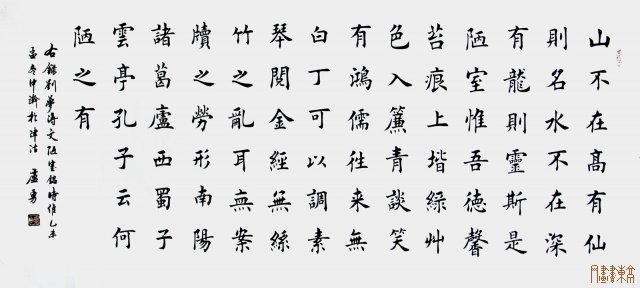 山不在高有仙
則名水不在深
有龍則靈斯是
陋室惟吾德馨
苔痕上堦綠艸
色入簾青談笑
有鴻儒往来無
白丁可以調素
琴閱金經無絲
竹之亂耳無案
牘之勞形南陽
諸葛廬西蜀子
雲亭孔子云何
陋之有
右錄劉夢得文陋室銘時維乙未
孟冬仲瀚於津沽 盧勇